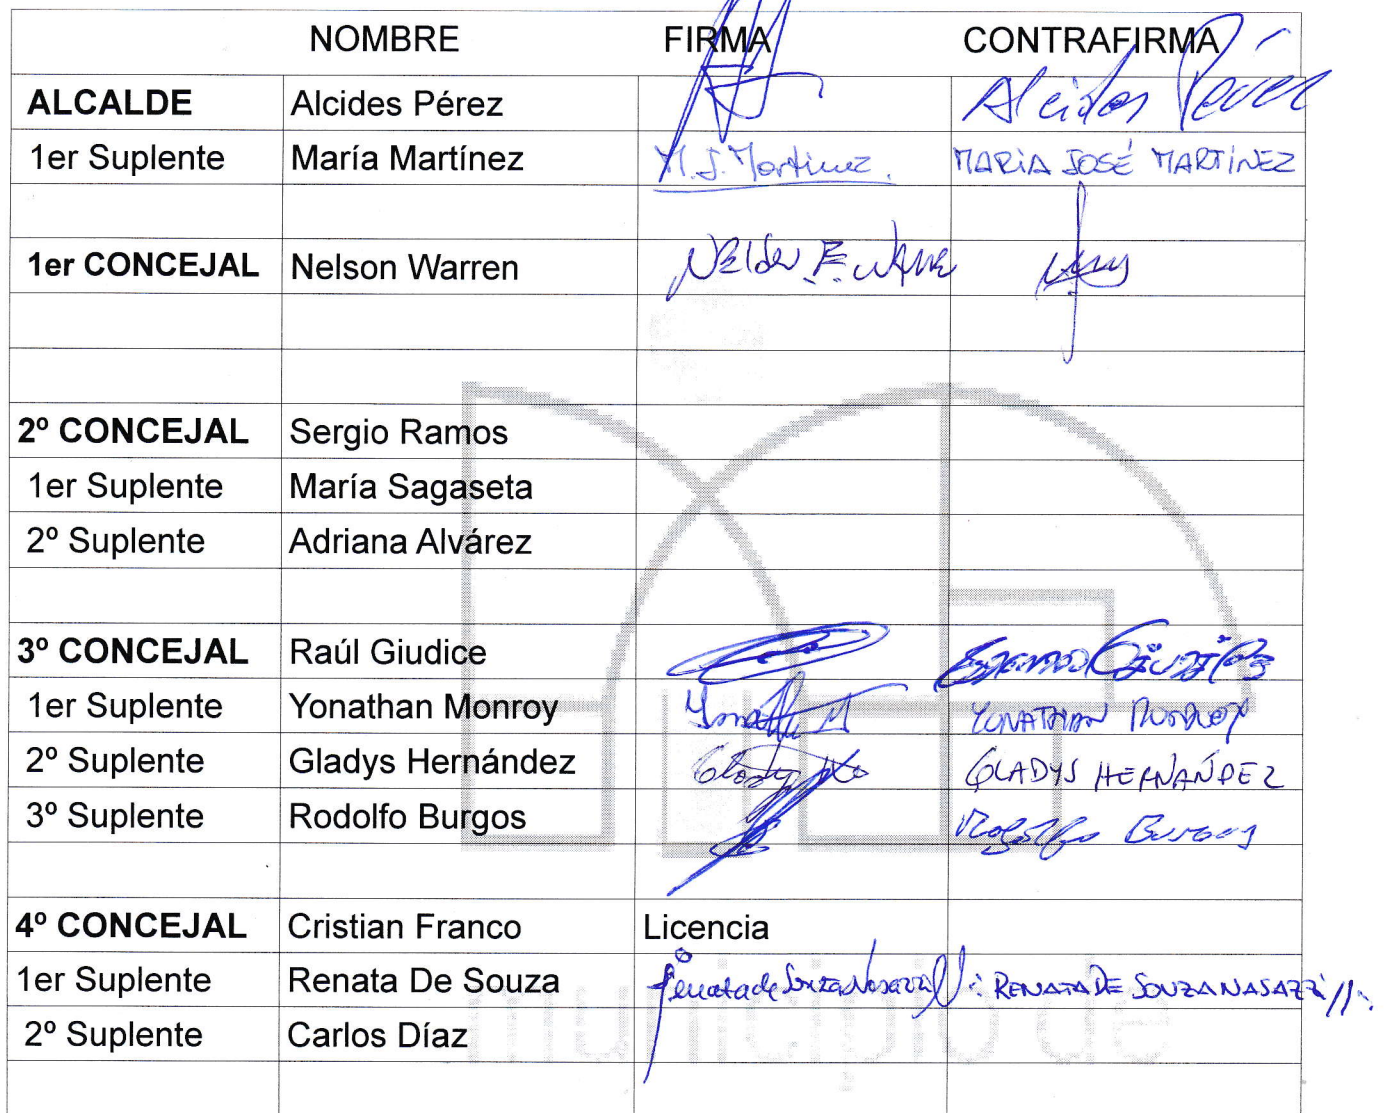 NOMBRE FIRMA CONTRAFIRMA
ALCALDE Alcides Pérez Alcides Pérez
1er Suplente María Martínez M.J. Martinez. MARÍA JOSÉ MARTÍNEZ
1er CONCEJAL Nelson Warren
2º CONCEJAL Sergio Ramos
1er Suplente María Sagaseta
2º Suplente Adriana Alvárez
3º CONCEJAL Raúl Giudice
1er Suplente Yonathan Monroy YONATHAN MONROY
2º Suplente Gladys Hernández GLADYS HERNÁNDEZ
3º Suplente Rodolfo Burgos Rodolfo Burgos
4º CONCEJAL Cristian Franco Licencia
1er Suplente Renata De Souza Renata de Souza Nasazzi RENATA DE SOUZA NASAZZI
2º Suplente Carlos Díaz
municipio de